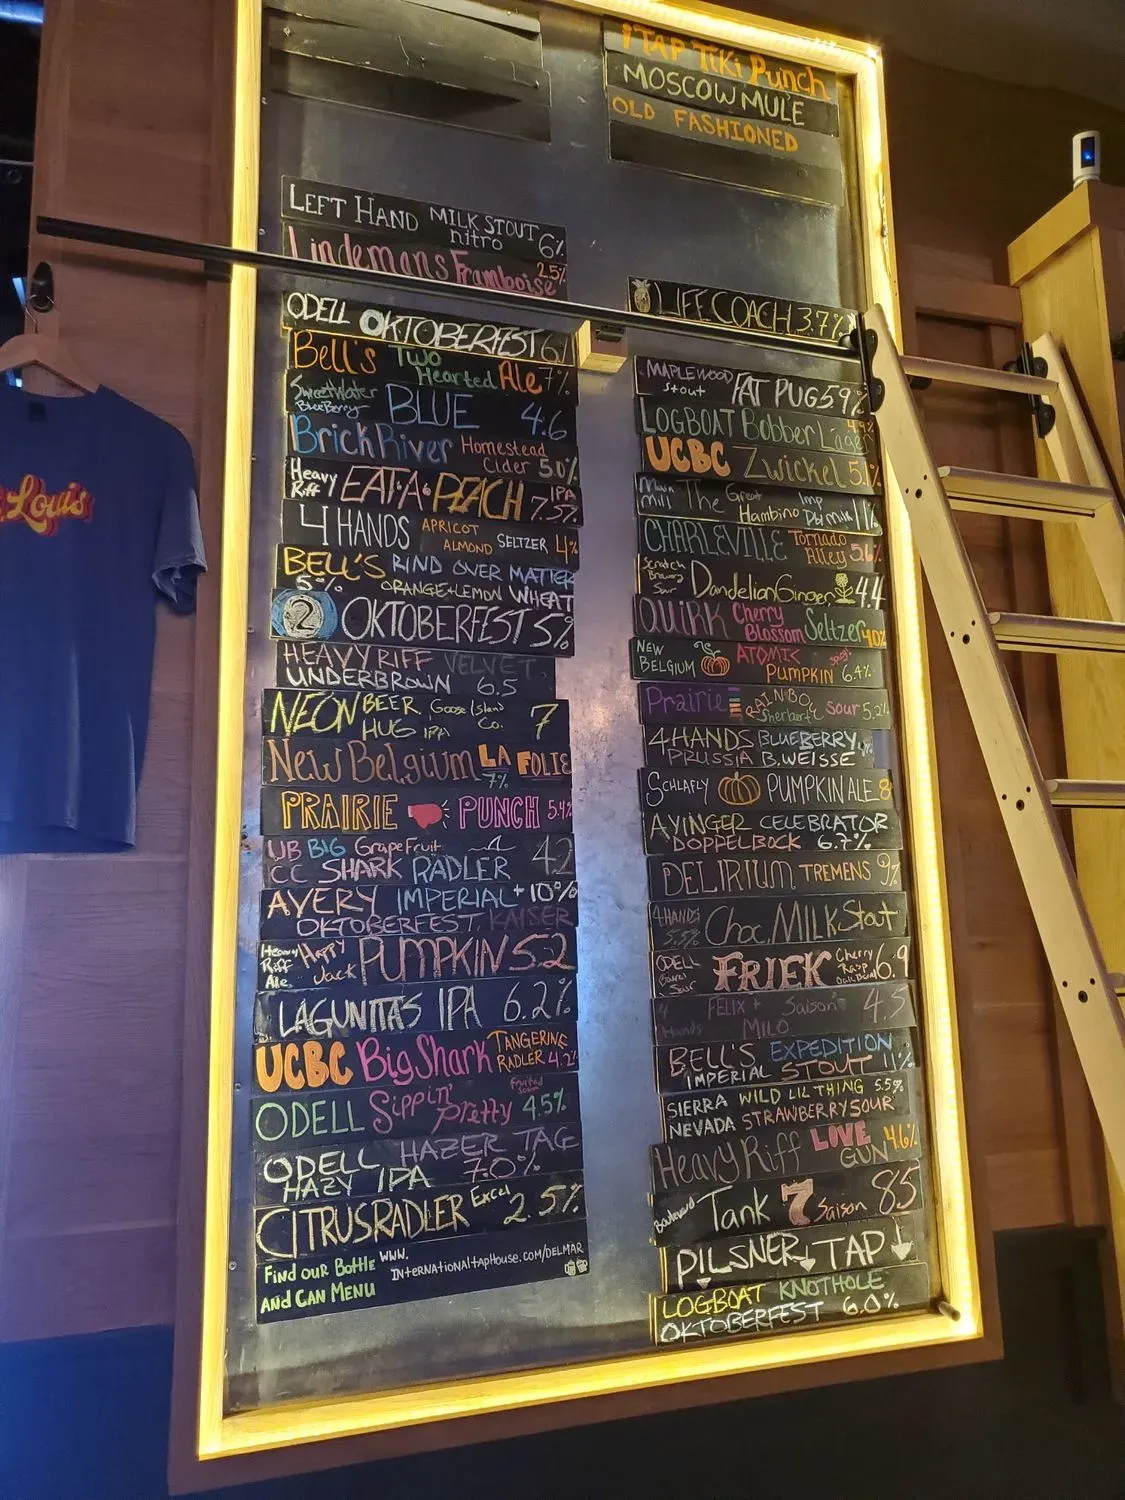 iTAP TiKi Punch
MOSCOW MULE
OLD FASHIONED
LEFT HAND MILK STOUT nitro 6%
Lindemans Framboise 2.5%
ODELL OKTOBERFEST
Bell's Two Hearted Ale 7%
SweetWater BlueBerry BLUE 4.6
Brick River Homestead Cider 5.0%
Heavy Riff EAT·A·PEACH IPA 7.5%
4 HANDS APRICOT ALMOND SELTZER 4%
BELL'S RIND OVER MATTER
5% ORANGE+LEMON WHEAT
2 OKTOBERFEST 5%
HEAVY RIFF VELVET
UNDERBROWN 6.5
NEON BEER HUG IPA Goose Island Co. 7
New Belgium LA FOLIE 7%
PRAIRIE PUNCH 5.4%
UB BIG GrapeFruit
CC SHARK RADLER 4.2
AVERY IMPERIAL +10%
OKTOBERFEST. KAISER
Heavy Riff Ale. Happy Jack PUMPKIN 5.2
LAGUNITAS IPA 6.2%
UCBC Big Shark TANGERINE RADLER 4.2%
ODELL Sippin' pretty fruited sour 4.5%
ODELL HAZER TAG
HAZY IPA 7.0%
CITRUSRADLER Excel 2.5%
Find our Bottle and Can Menu
www.InternationaltapHouse.com/DELMAR
LIFE COACH 3.7%
MAPLEWOOD Stout FAT PUG 5.9%
LOGBOAT Bobber Lager 4.9%
UCBC Zwickel 5.1%
Main Mill The Great Hambino Imp 11%
CHARLEVILLE Tornado Alley 5.6%
Scratch Brewery Sour Dandelion Ginger 4.4
QUIRK Cherry Blossom Seltzer 4.0%
NEW BELGIUM ATOMIC PUMPKIN 6.4%
Prairie RAINBOW Sherbert Sour 5.2%
4 HANDS BLUEBERRY
PRUSSIA B.WEISSE
SCHLAFLY PUMPKIN ALE 8
AYINGER CELEBRATOR
DOPPELBOCK 6.7%
DELIRIUM TREMENS 9%
4 HANDS 5.5% Choc. MILK Stout
ODELL Barrel Sour FRIEK Cherry Rasp 6.9
4 Hands FELIX + MILO Saison 4.5
BELL'S EXPEDITION
IMPERIAL STOUT 11%
SIERRA WILD LIL THING 5.5%
NEVADA STRAWBERRY SOUR
Heavy Riff LOVE GUN 4.6%
Boulevard Tank 7 Saison 8.5
PILSNER TAP
LOGBOAT KNOTHOLE
OKTOBERFEST 6.0%
Louis